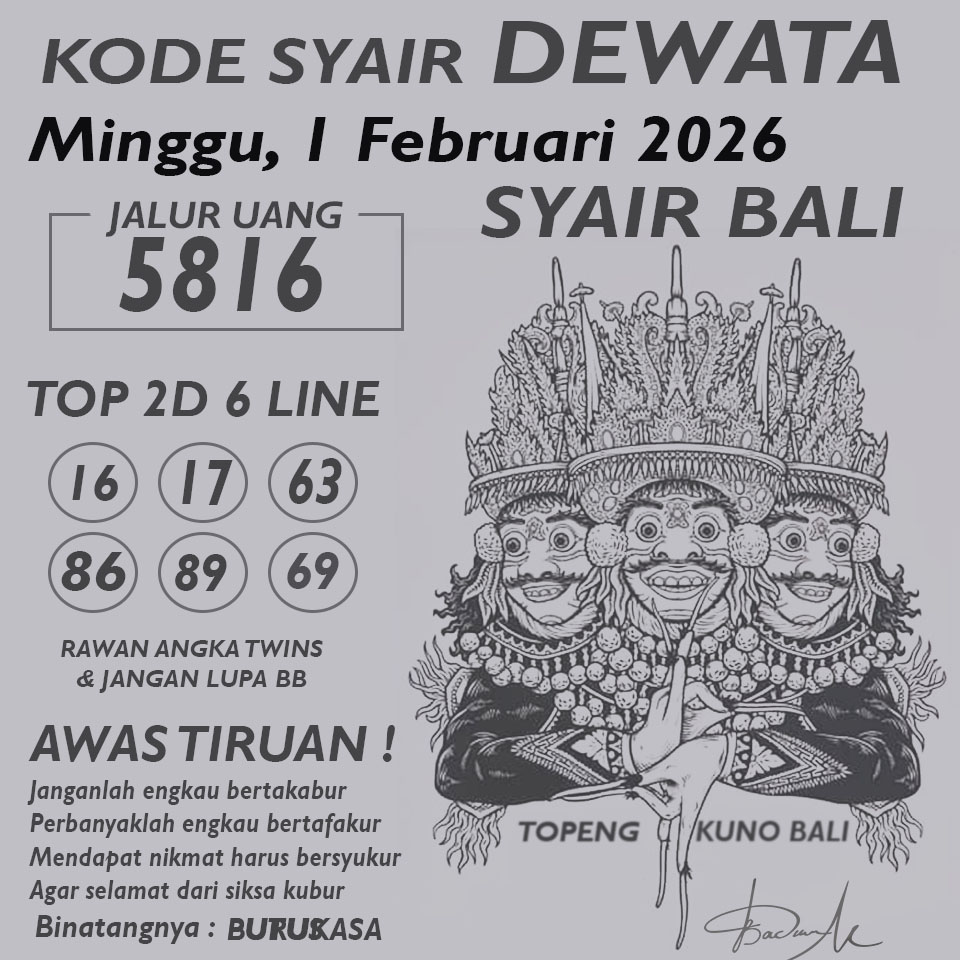 KODE SYAIR DEWATA
Minggu, 1 Februari 2026
SYAIR BALI
JALUR UANG
5816
TOP 2D 6 LINE
16 17 63
86 89 69
RAWAN ANGKA TWINS
& JANGAN LUPA BB
AWAS TIRUAN !
Janganlah engkau bertakabur
Perbanyaklah engkau bertafakur
Mendapat nikmat harus bersyukur
Agar selamat dari siksa kubur
Binatangnya :
TOPENG KUNO BALI